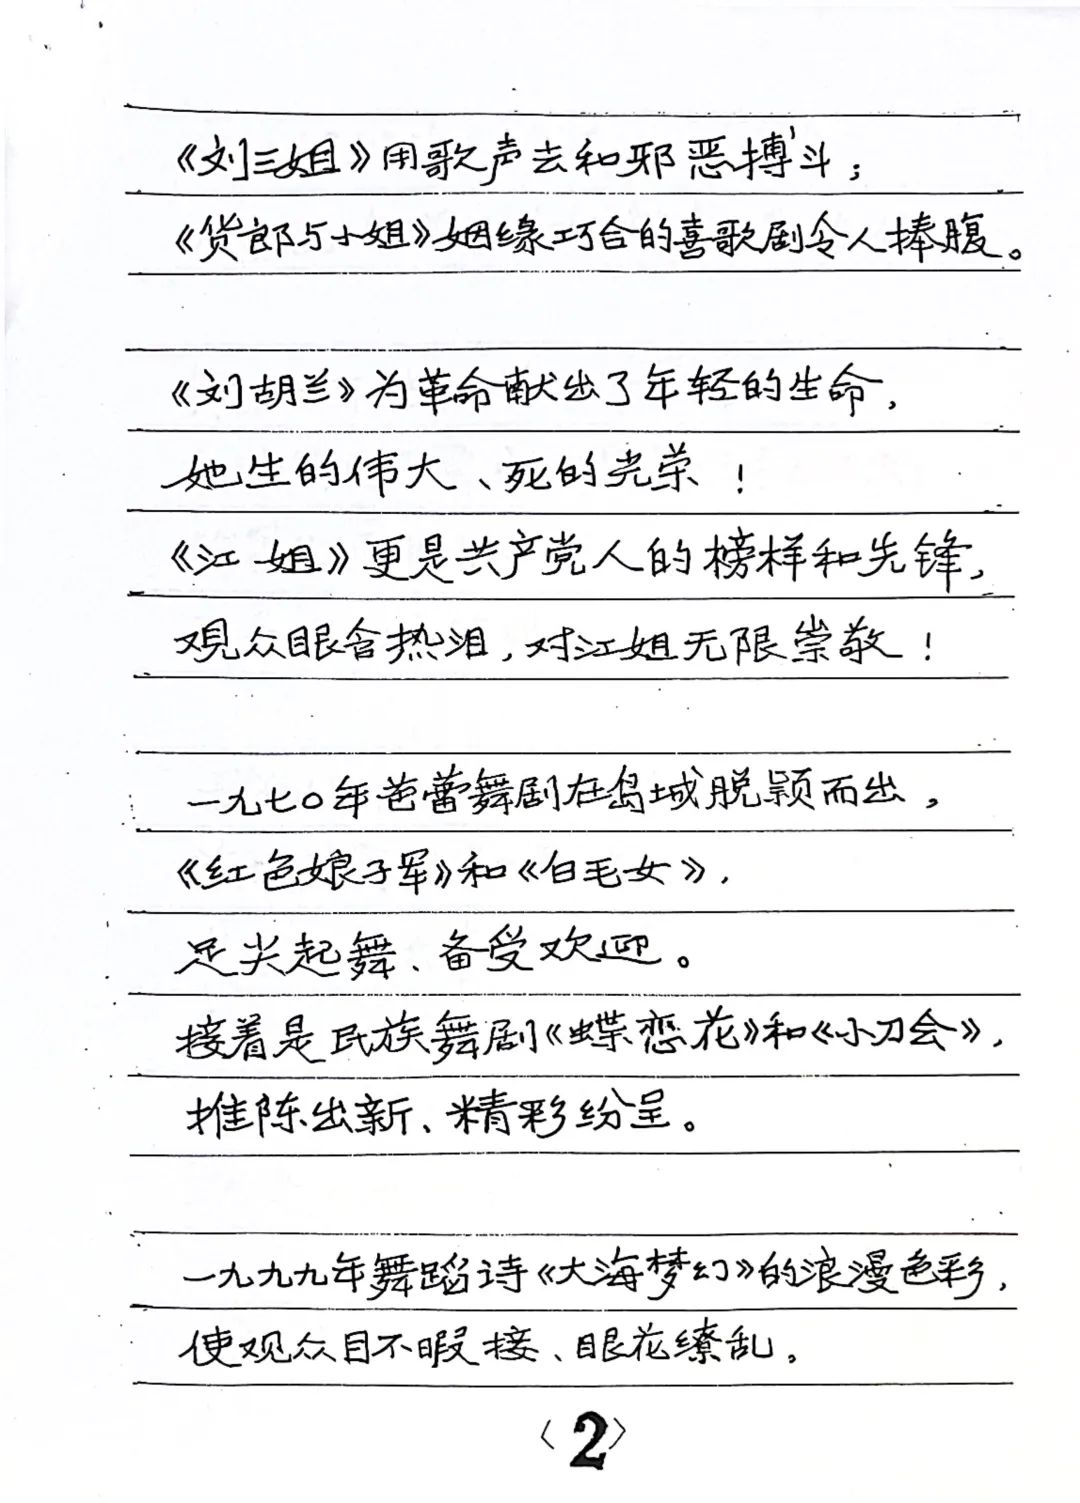 《刘三姐》用歌声去和邪恶搏斗；
《货郎与小姐》姻缘巧合的喜歌剧令人捧腹。
《刘胡兰》为革命献出了年轻的生命，
她生的伟大、死的光荣！
《江姐》更是共产党人的榜样和先锋，
观众眼含热泪，对江姐无限崇敬！
一九七〇年芭蕾舞剧在岛城脱颖而出，
《红色娘子军》和《白毛女》，
足尖起舞、备受欢迎。
接着是民族舞剧《蝶恋花》和《小刀会》，
推陈出新、精彩纷呈。
一九九九年舞蹈诗《大海梦幻》的浪漫色彩，
使观众目不暇接、眼花缭乱。
〈2〉